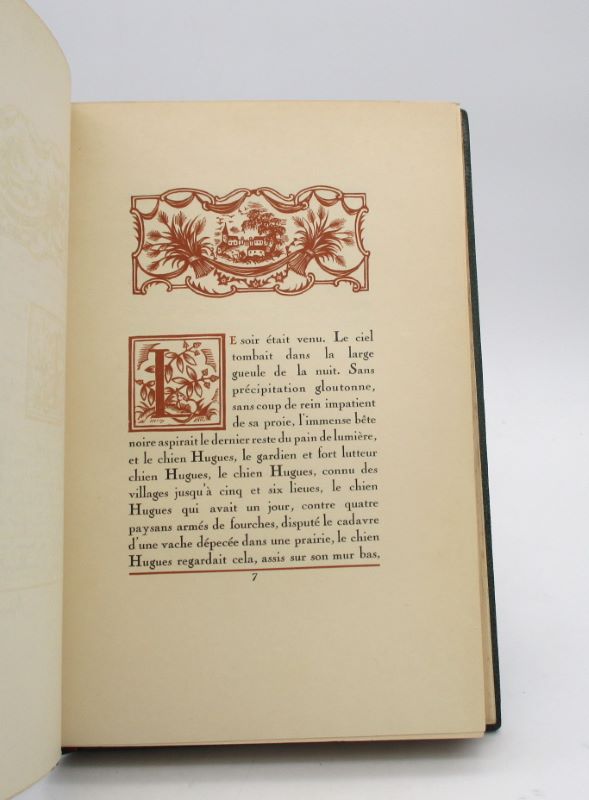 LE soir était venu. Le ciel
tombait dans la large
gueule de la nuit. Sans
précipitation gloutonne,
sans coup de rein impatient
de sa proie, l'immense bête
noire aspirait le dernier reste du pain de lumière,
et le chien Hugues, le gardien et fort lutteur
chien Hugues, le chien Hugues, connu des
villages jusqu'à cinq et six lieues, le chien
Hugues qui avait un jour, contre quatre
paysans armés de fourches, disputé le cadavre
d'une vache dépecée dans une prairie, le chien
Hugues regardait cela, assis sur son mur bas,
7